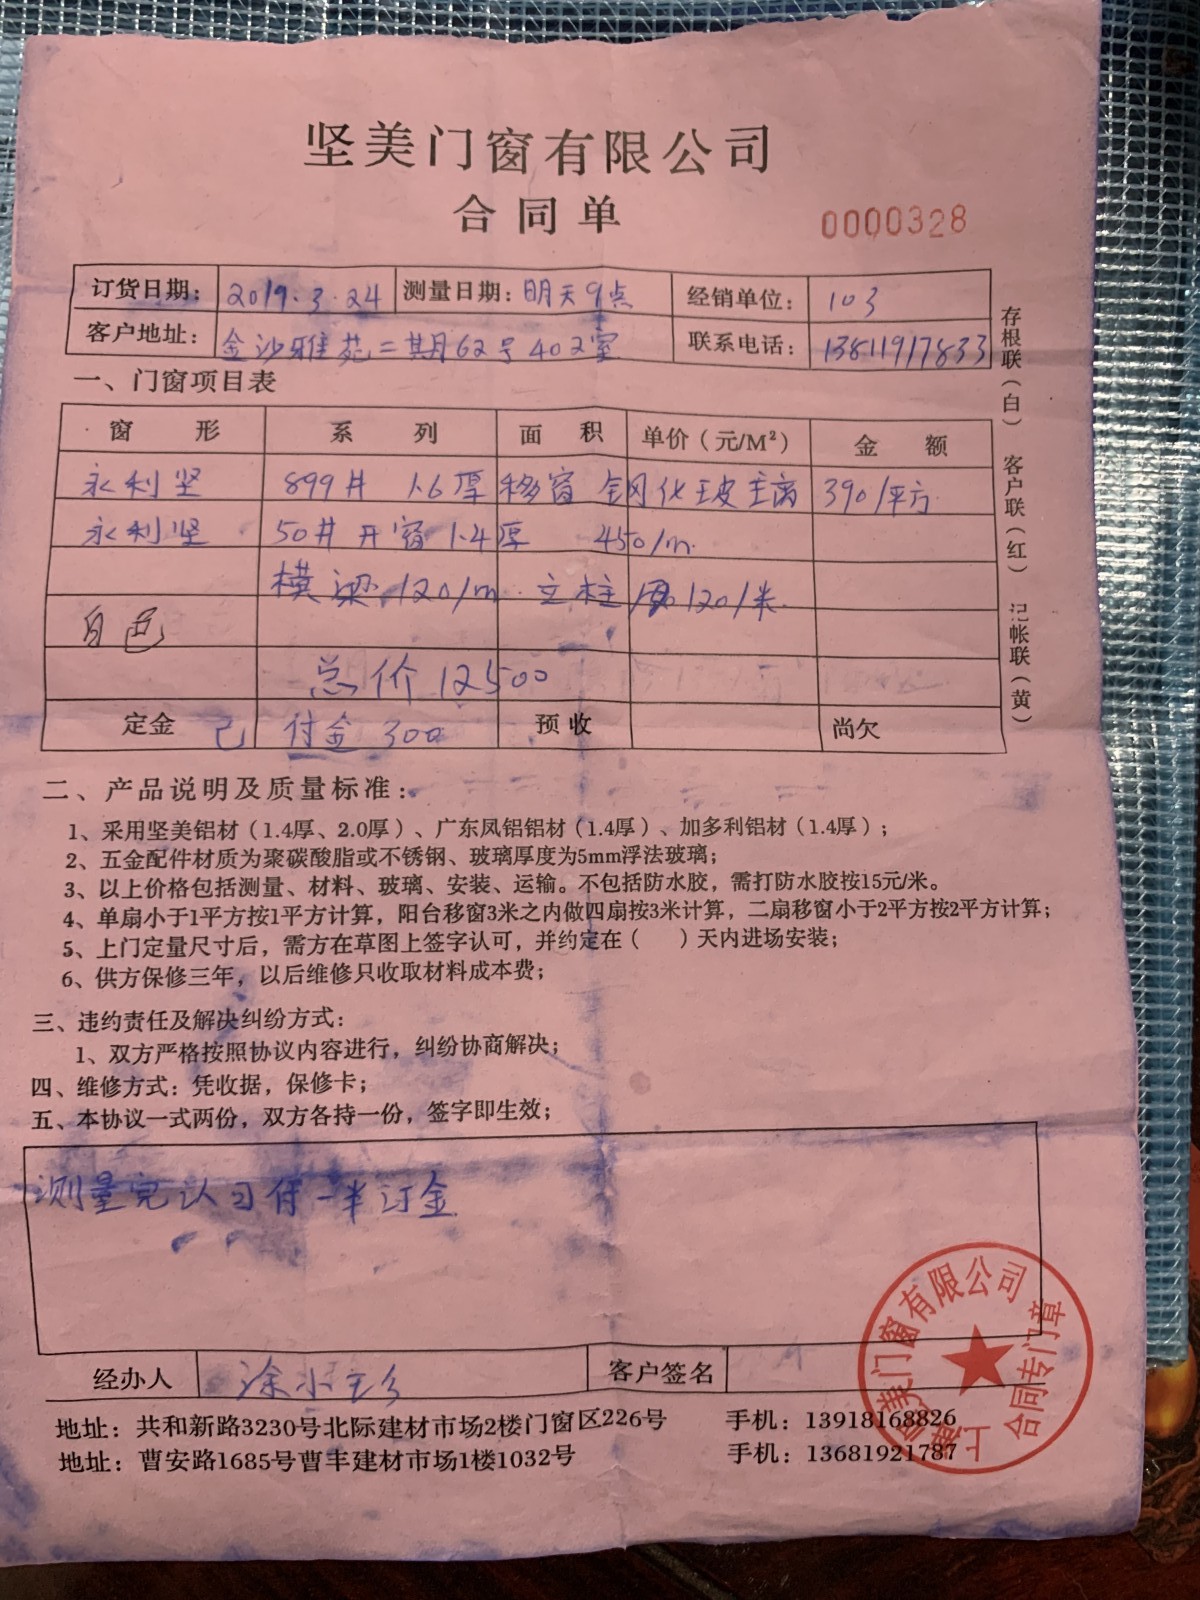 坚美门窗有限公司
合同单
0000328
订货日期：2019.3.24 测量日期：明天9点 经销单位：103
客户地址：金沙雅苑二期62号402室 联系电话：13811917833
存根联（白） 客户联（红） 记帐联（黄）
一、门窗项目表
窗形 系列 面积 单价（元/M²） 金额
永利坚 899井 1.6厚 移窗 钢化玻璃 390/平方
永利坚 50井开窗1.4厚 450/m
横梁.120/m.立柱 120/米.
白色
总价12500
定金 已付金300 预收 尚欠
二、产品说明及质量标准：
1、采用坚美铝材（1.4厚、2.0厚）、广东凤铝铝材（1.4厚）、加多利铝材（1.4厚）；
2、五金配件材质为聚碳酸脂或不锈钢、玻璃厚度为5mm浮法玻璃；
3、以上价格包括测量、材料、玻璃、安装、运输。不包括防水胶，需打防水胶按15元/米。
4、单扇小于1平方按1平方计算，阳台移窗3米之内做四扇按3米计算，二扇移窗小于2平方按2平方计算；
5、上门定量尺寸后，需方在草图上签字认可，并约定在（ ）天内进场安装；
6、供方保修三年，以后维修只收取材料成本费；
三、违约责任及解决纠纷方式：
1、双方严格按照协议内容进行，纠纷协商解决；
四、维修方式：凭收据，保修卡；
五、本协议一式两份，双方各持一份，签字即生效；
测量完认习付一半订金
经办人 涂小 客户签名
地址：共和新路3230号北际建材市场2楼门窗区226号 手机：13918168826
地址：曹安路1685号曹丰建材市场1楼1032号 手机：13681921787
上海坚美门窗有限公司
合同专门章